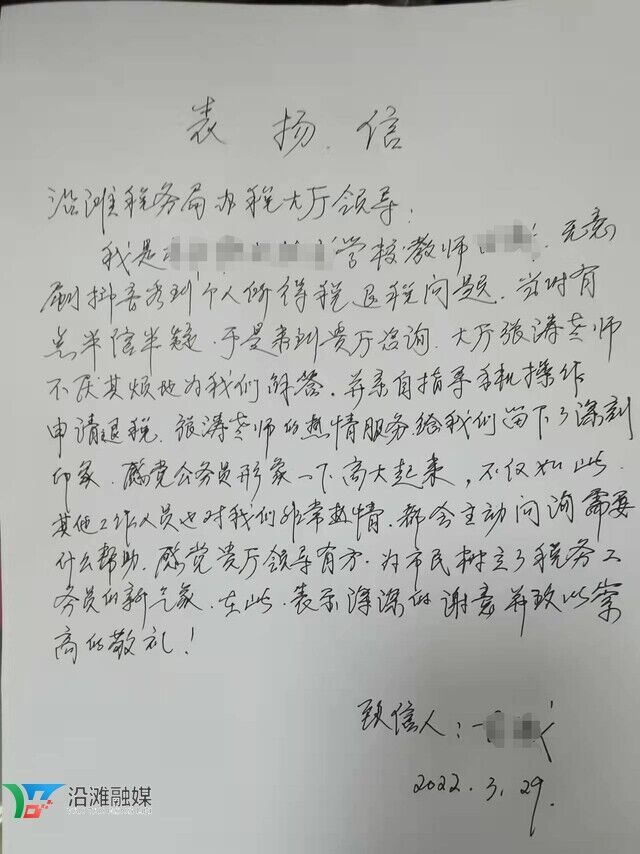 表扬信
沿滩税务局办税大厅领导:
我是学校教师 无意
刷抖音看到个人所得税退税问题. 当时有
点半信半疑. 于是来到贵厅咨询. 大厅张涛老师
不厌其烦地为我们解答. 并亲自指导手机操作
申请退税. 张涛老师的热情服务给我们留下了深刻
印象. 感觉公务员形象一下高大起来, 不仅如此.
其他工作人员也对我们非常热情. 都会主动问询需要
什么帮助. 感觉贵厅领导有方. 为市民树立了税务工
务员的新气象. 在此. 表示深深的谢意并致以崇
高的敬礼!
致信人:
2022.3.29.
沿滩融媒